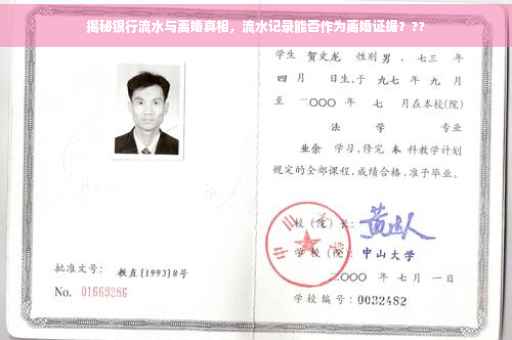 揭秘银行流水与离婚真相，流水记录能否作为离婚证据？??
学生 贺文龙 性别 男 、七三 年
四 月 日生,于 九七 年 九 月
至 二〇〇〇 年 七 月在本校(院)
法 学 专业
业余 学习,修完 本 科教学计划
规定的全部课程,成绩合格,准予毕业。
校(院)长:
学校(院): 中山大学
二〇〇〇 年 七 月 一 日
学校编号: 0032482
批准文号: 教直[1993]8号
No. 01669286